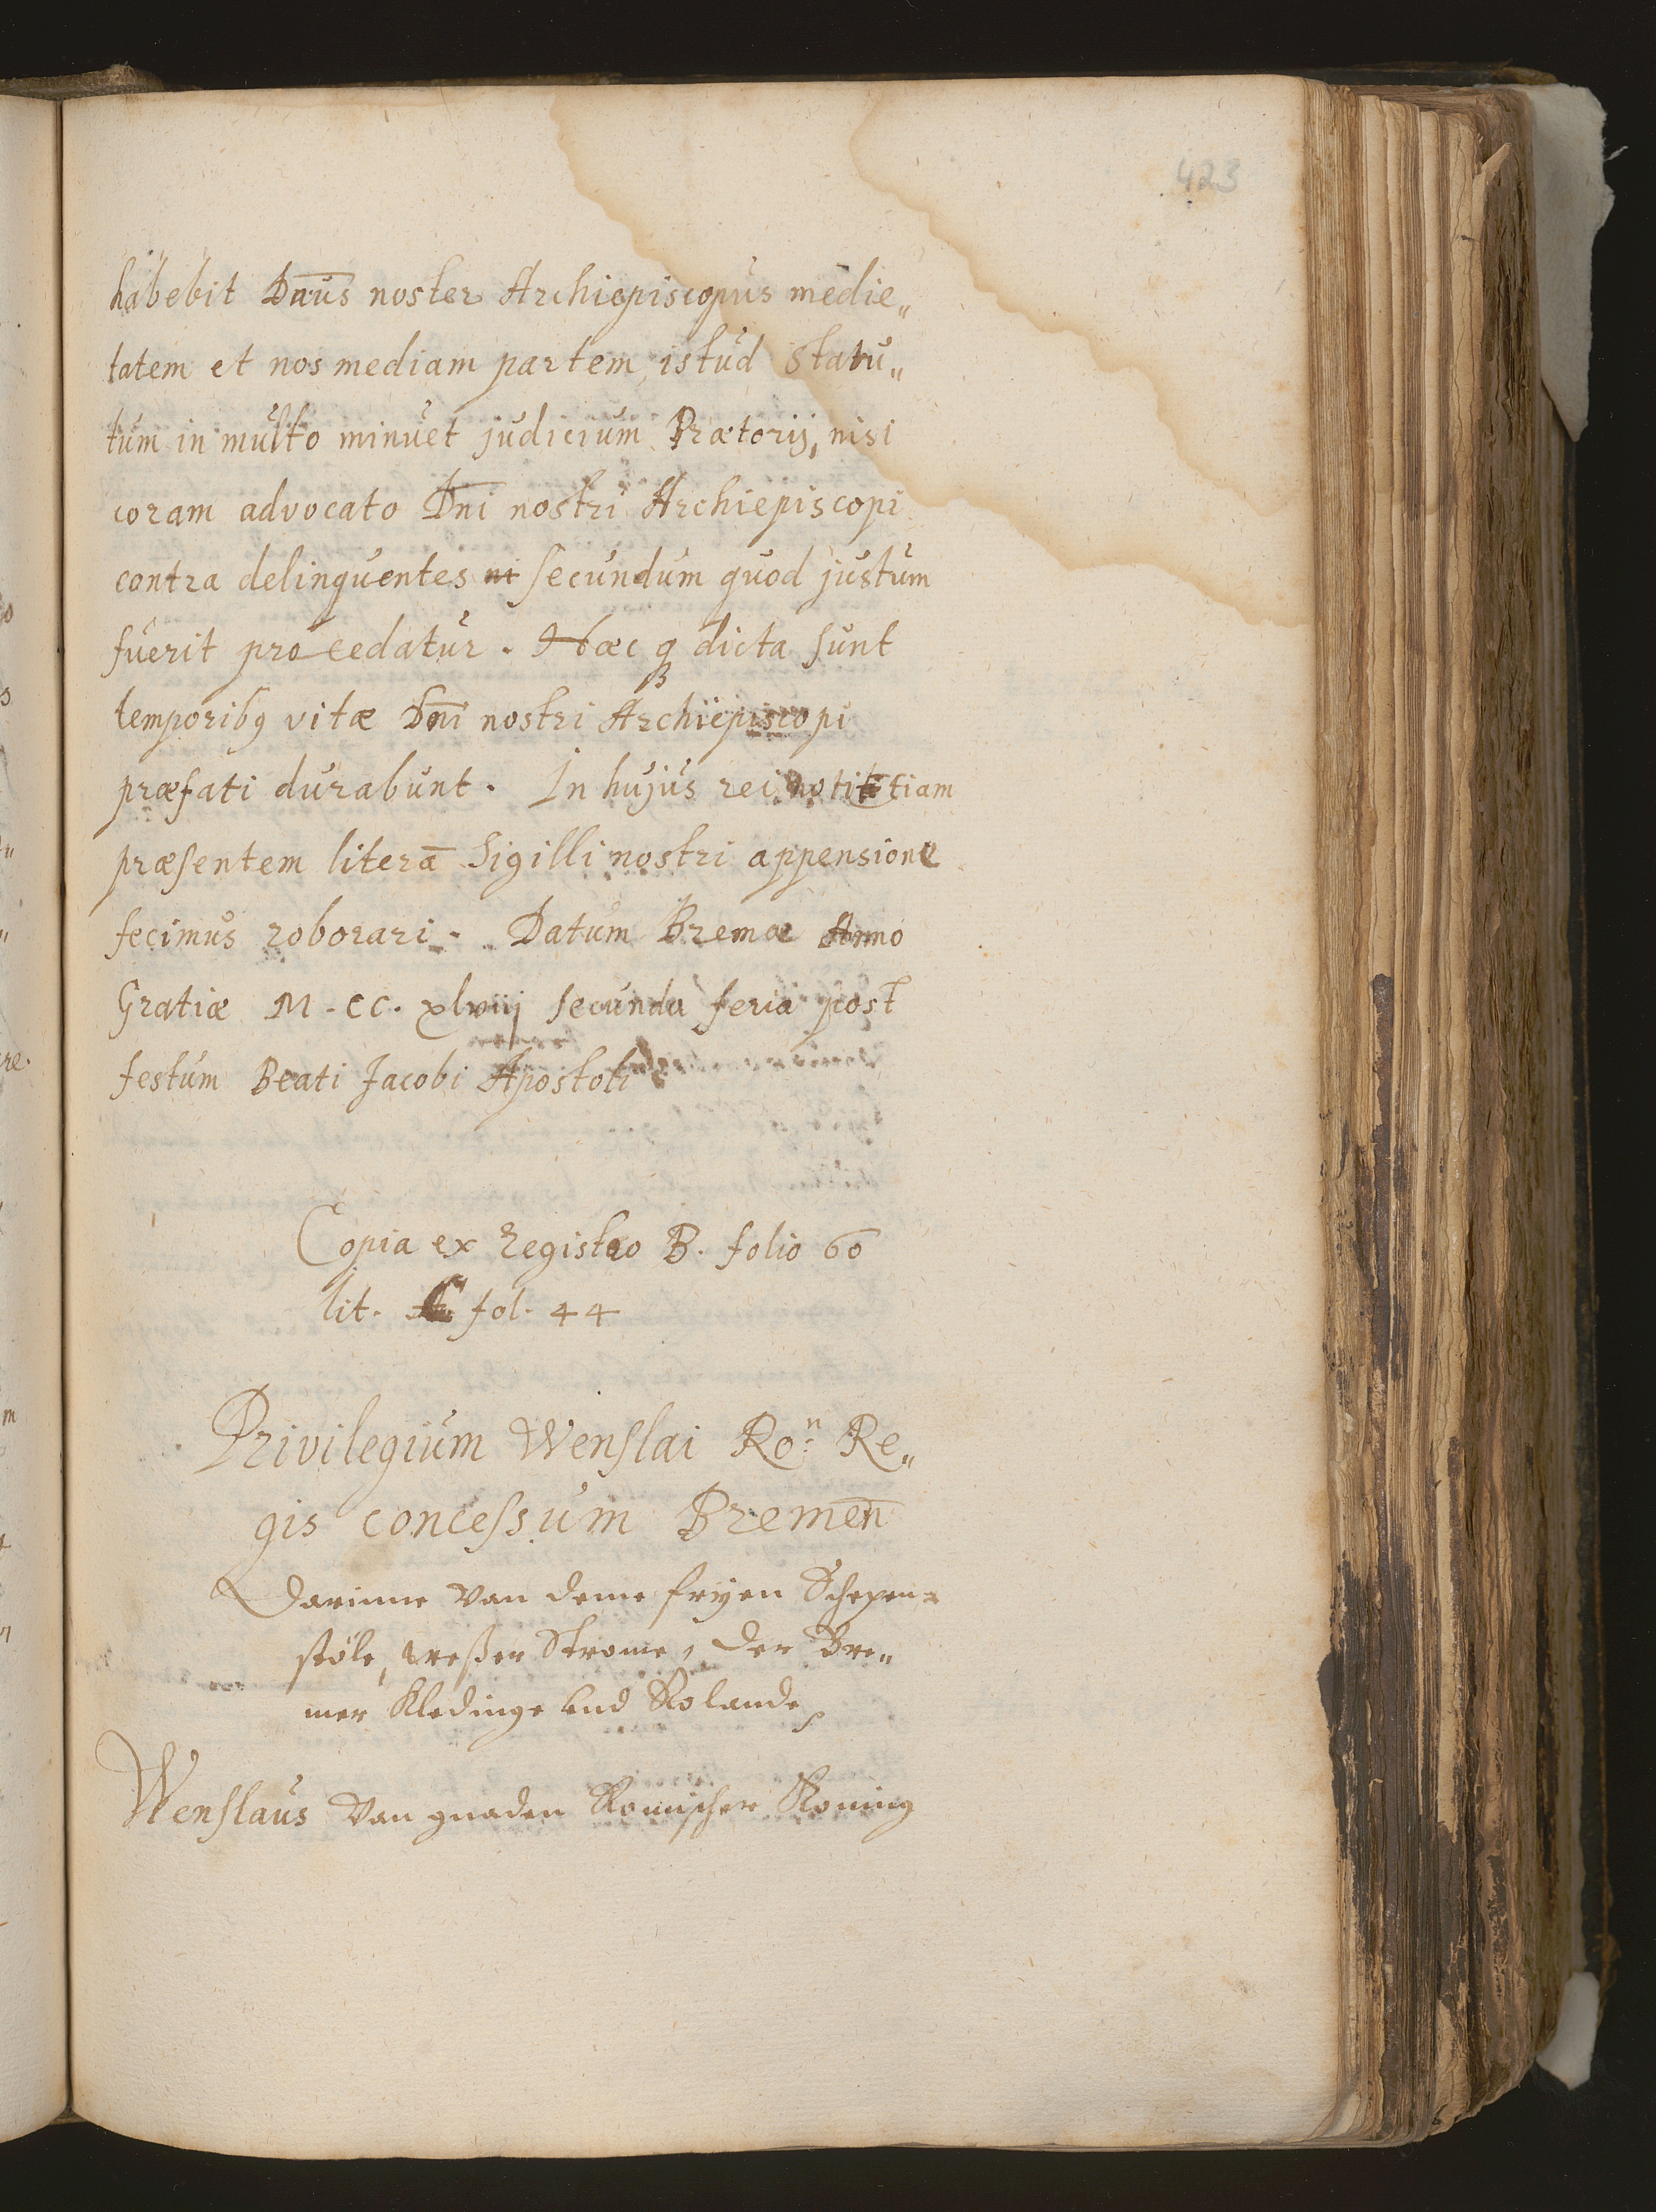 423
habebit Dnūs noster Archiepiscopus medie„
tatem et nos mediam partem, istud Statu„
tum in multo minuet judicium Prætorij, nisi
coram advocato Dn̄i nostri Archiepiscopi
contra delinquentes ni secundum quod justum
fuerit procedatur. Hæc q̨ dicta sunt
temporibꝯ vitæ Dn̄i nostri Archiepiscopi
præfati durabunt. In hujus rei notititiam
præsentem literā Sigilli nostri appensione
fecimus roborari. Datum Bremæ Anno
Gratiæ M. CC. xlviij secunda feria post
festum Beati Jacobi Apostoli
Copia ex Registro B. folio 60
lit. C fol. 44
Privilegium Wenslai Roⁿ: Re„
gis concessum Bremen̄
Darinne van deme fryen Schepen=
stöle, Weßer Strome, der Bre„
mer Kledinge vnd Rolande
Wenslaus van gnaden Romischer Koning